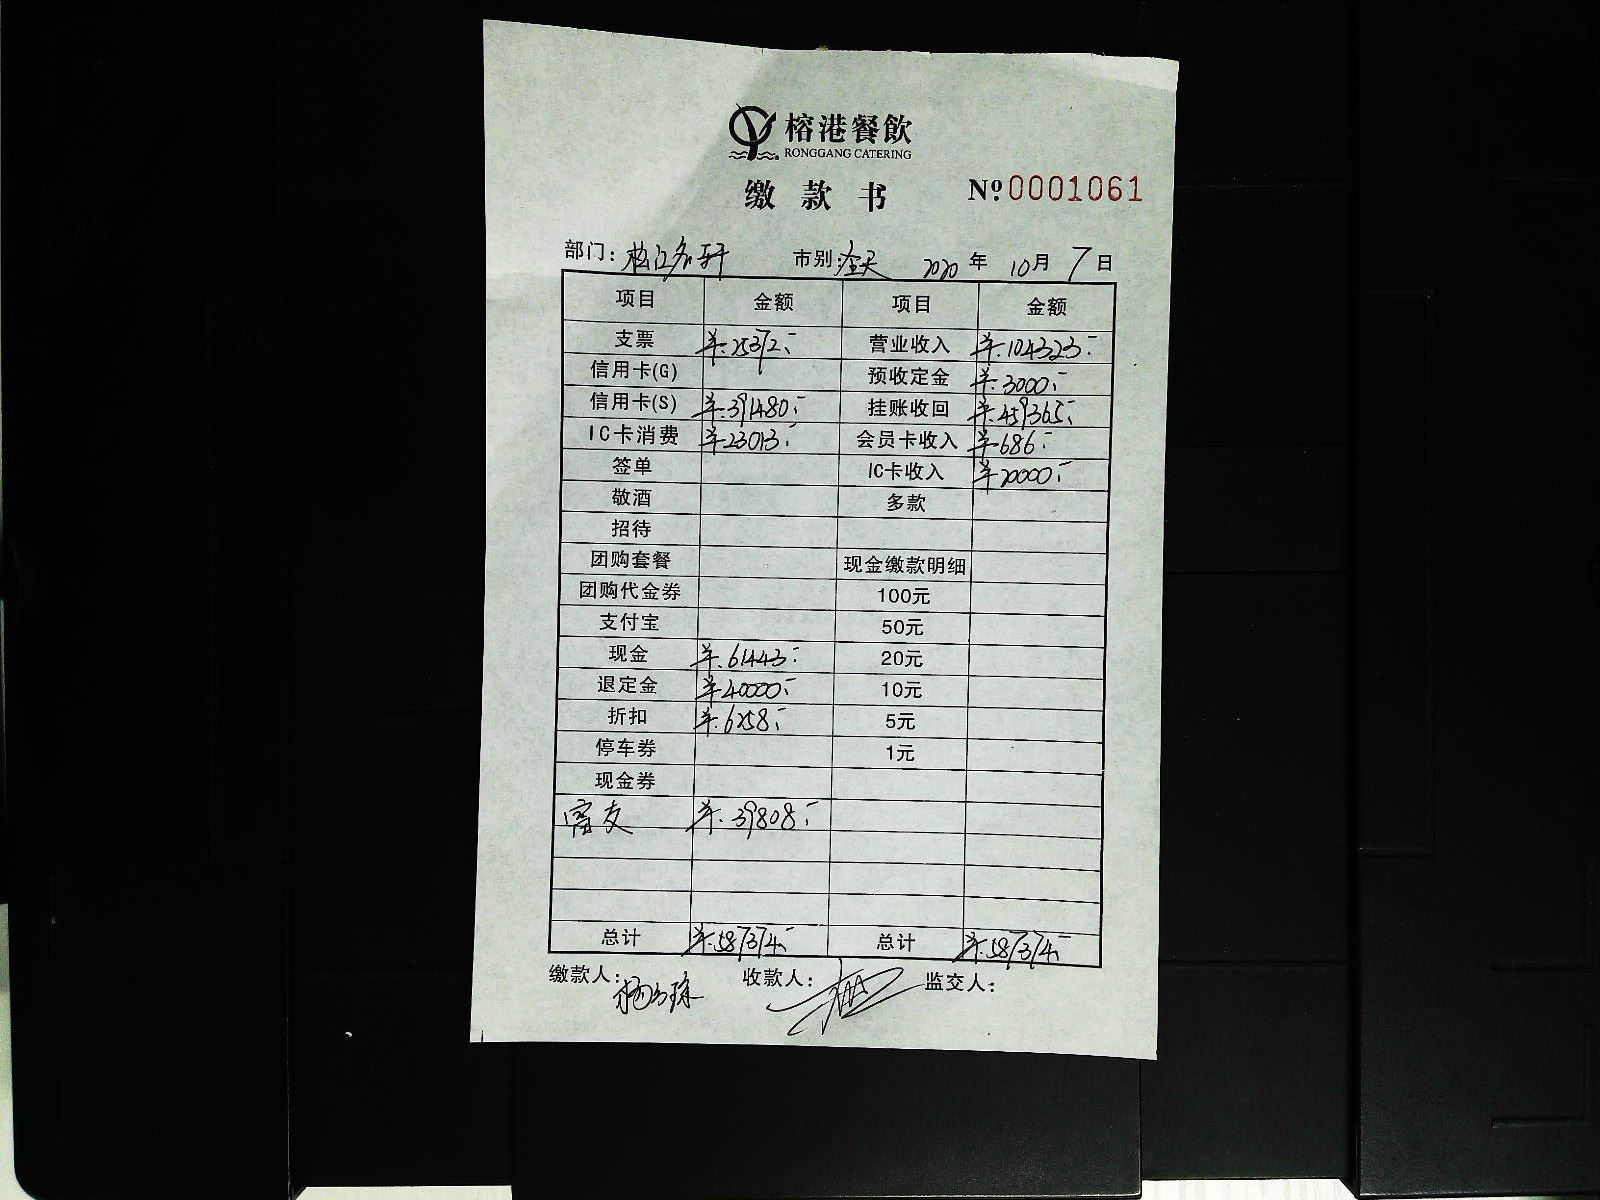 榕港餐飲
RONGGANG CATERING
缴款书 Nº:0001061
部门: 松江名轩 市别: 全天 2020年 10月 7日
项目 金额 项目 金额
支票 ¥:25372:- 营业收入 ¥:104323:-
信用卡(G) 预收定金 ¥:3000:-
信用卡(S) ¥:391480:- 挂账收回 ¥:459365:-
IC卡消费 ¥23013:- 会员卡收入 ¥686:-
签单 IC卡收入 ¥20000:-
敬酒 多款
招待
团购套餐 现金缴款明细
团购代金券 100元
支付宝 50元
现金 ¥:61443:- 20元
退定金 ¥40000:- 10元
折扣 ¥:6258:- 5元
停车券 1元
现金券
富友 ¥:39808:-
总计 ¥:587374:- 总计 ¥:587374:-
缴款人: 收款人: 监交人: